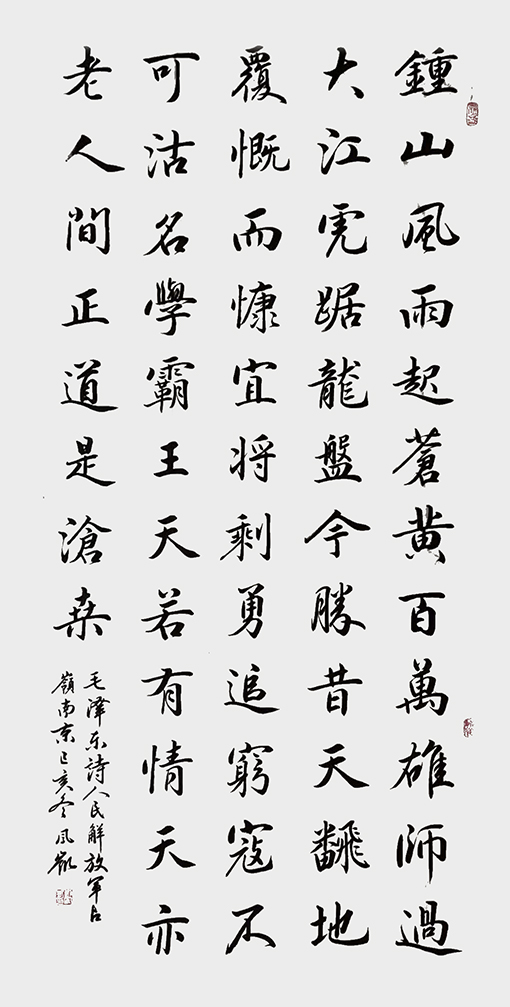 鍾山風雨起蒼黄百萬雄師過
大江虎踞龍盤今勝昔天飜地
覆慨而慷宜将剩勇追窮寇不
可沽名學霸王天若有情天亦
老人間正道是滄桒
毛澤东詩人民解放軍占
嶺南京己亥冬风